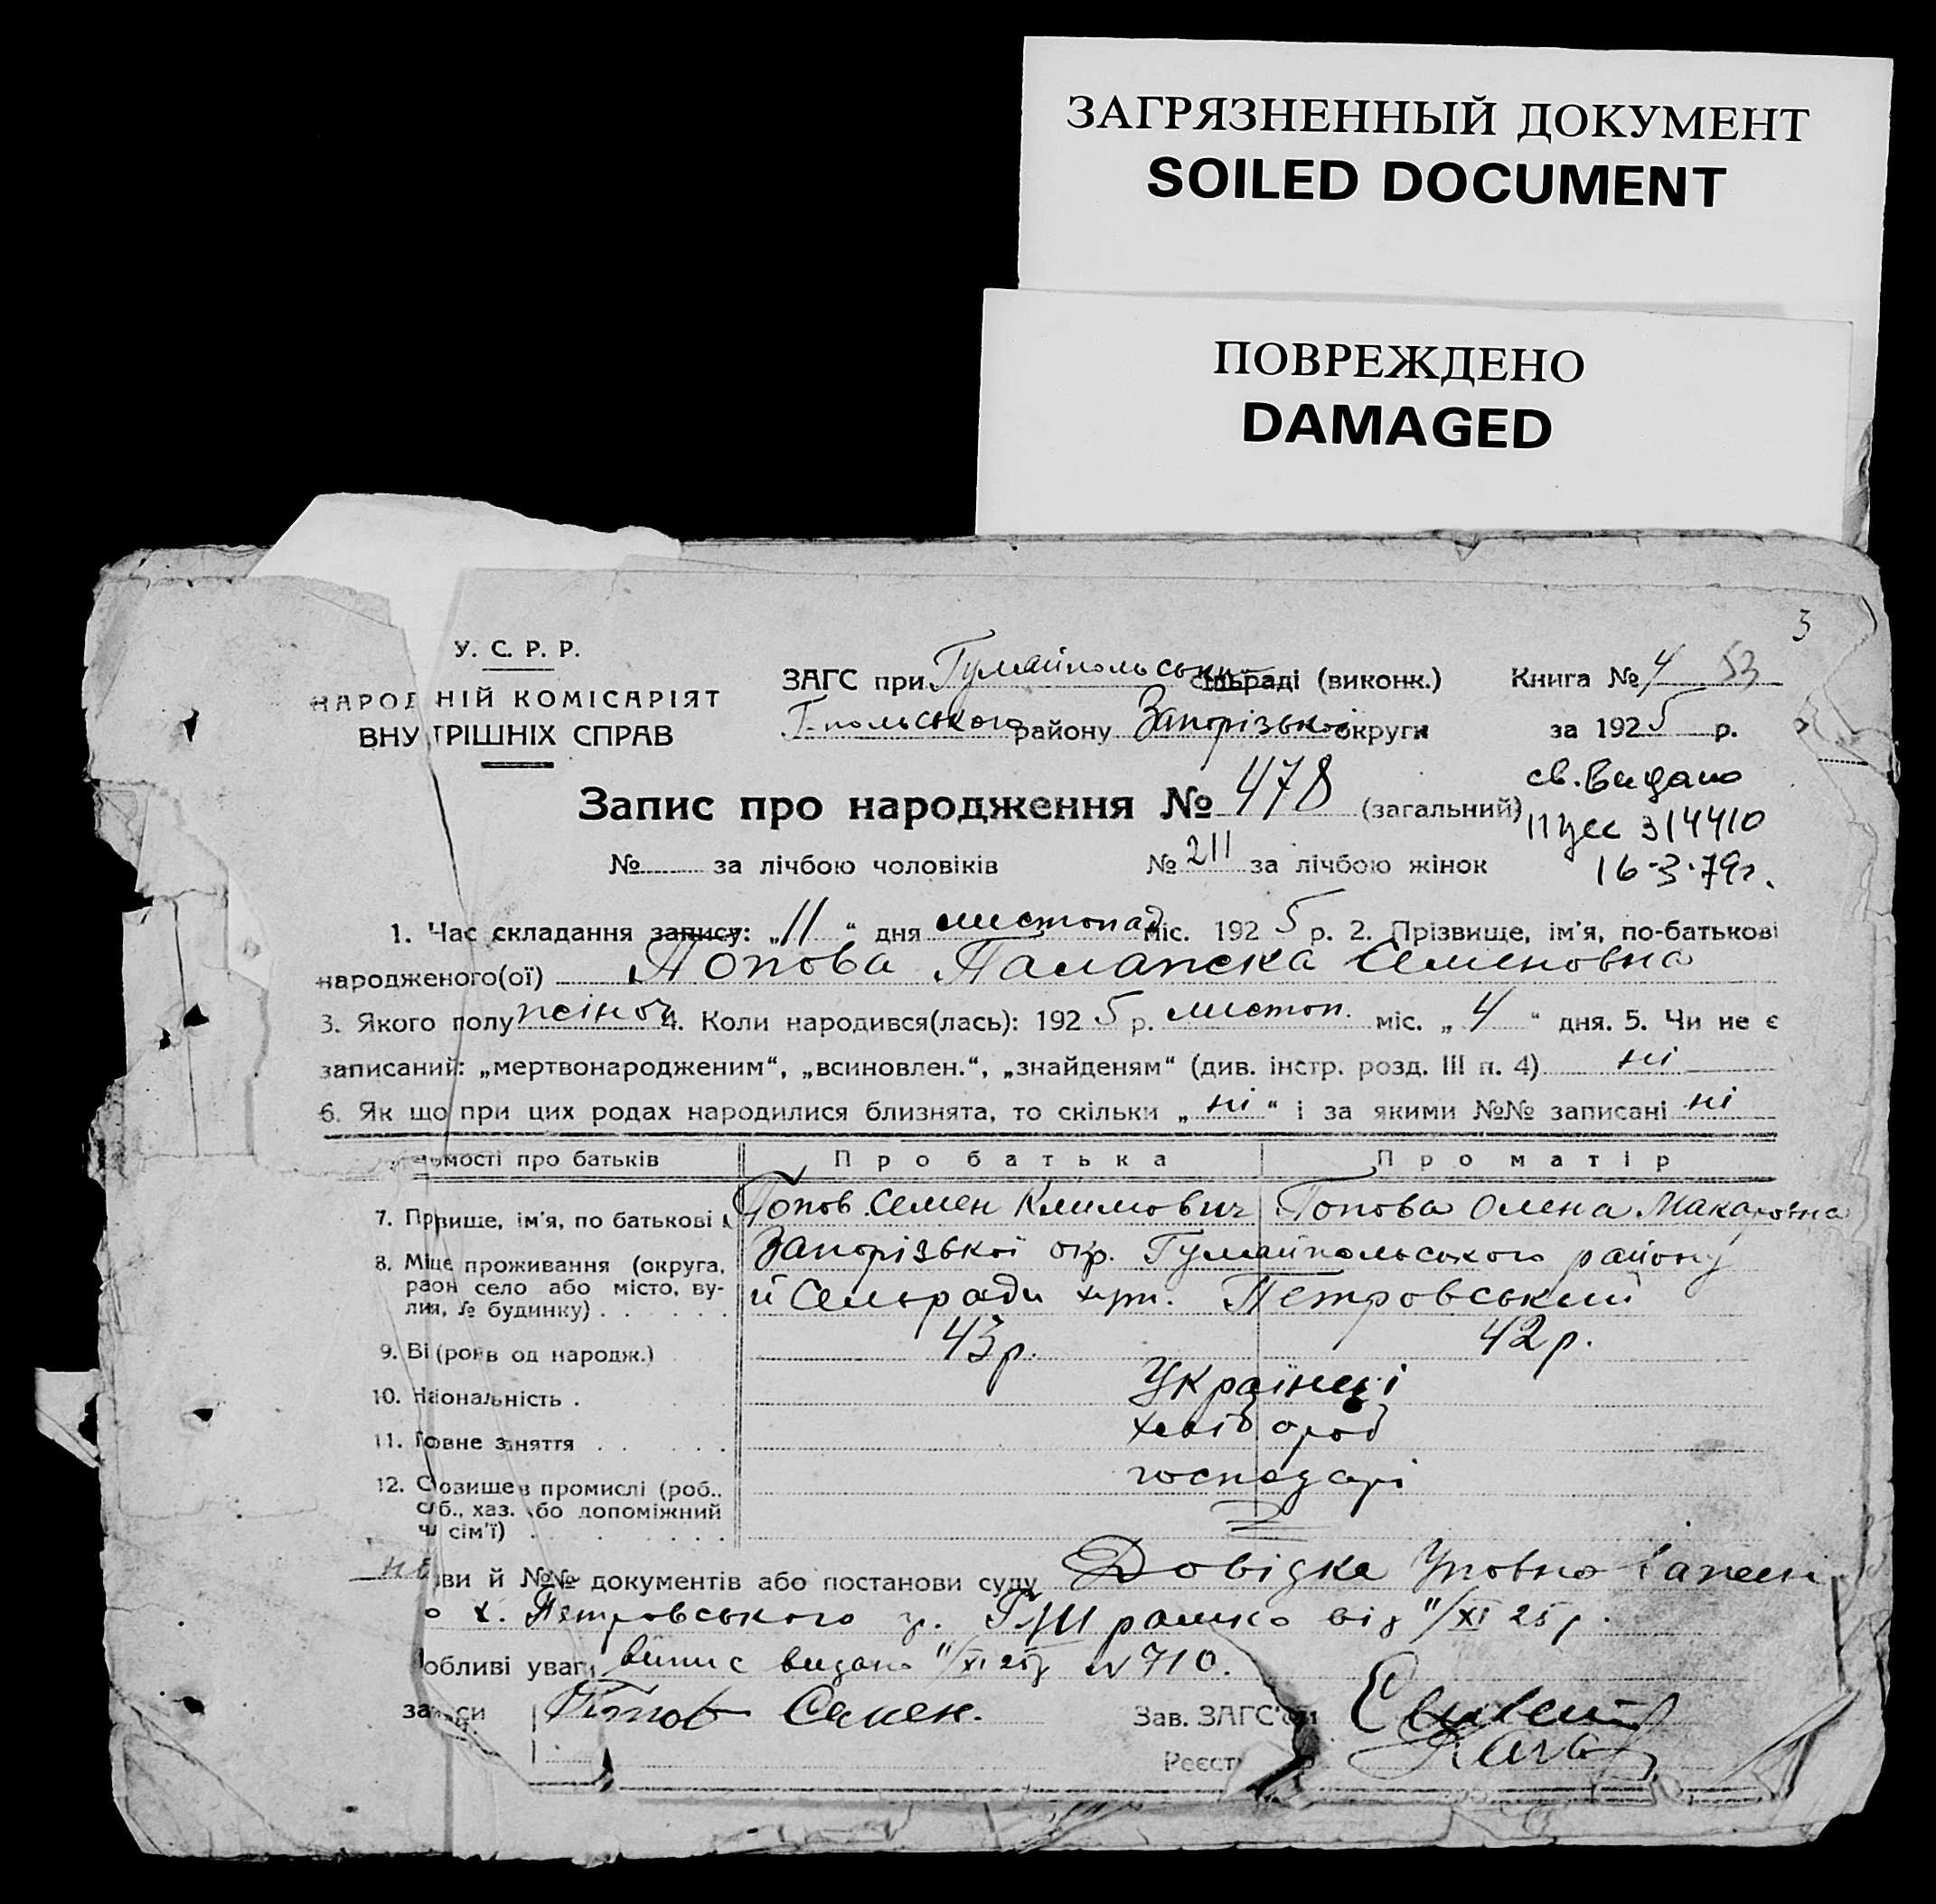 ЗАГРЯЗНЕННЫЙ ДОКУМЕНТ
SOILED DOCUMENT
ПОВРЕЖДЕНО
DAMAGED
3
У. С. Р. Р.
НАРОДНІЙ КОМІСАРІЯТ
ВНУТРІШНІХ СПРАВ
ЗАГС при Гумайпольськ сільраді (виконк.)
Г-польського району Запорізької округи
Книга № 4 53
за 1925 р.
Запис про народження № 478 (загальний)
св. видано
314410
16-3-79г.
№ за лічбою чоловіків № 211 за лічбою жінок
1. Час складання запису: „11“ дня листопад міс. 1925 р. 2. Прізвище, ім'я, по-батькові
народженого(ої) Попова Палажка Семеновна
3. Якого полу жіноч 4. Коли народився(лась): 1925 р. листоп. міс. „4“ дня. 5. Чи не є
записаний: „мертвонародженим“, „всиновлен.“, „знайденям“ (див. інстр. розд. III п. 4) ні
6. Як що при цих родах народилися близнята, то скільки „ні“ і за якими №№ записані ні
омості про батьків Про батька Про матір
7. Првище, ім'я, по батькові Попов Семен Климович Попова Олена Макаровна
8. Міце проживання (округа, Запорізької окр. Гумайпольського району
раон село або місто, ву- й Сельради хут. Петровський
лия, № будинку)
9. Ві (років од народж.) 43 р. 42 р.
10. Наональність Українці
11. Говне заняття хлібороб
12. Созище в промислі (роб., господарі
сб., хаз. або допоміжний
ч сім'ї)
ви й №№ документів або постанови суду Довідка
о х. Петровського від 11/XI 25 р.
обливі уваги випис видано 11/XI 25 р № 710.
Попов Семен. Зав. ЗАГС'ом
Реєст